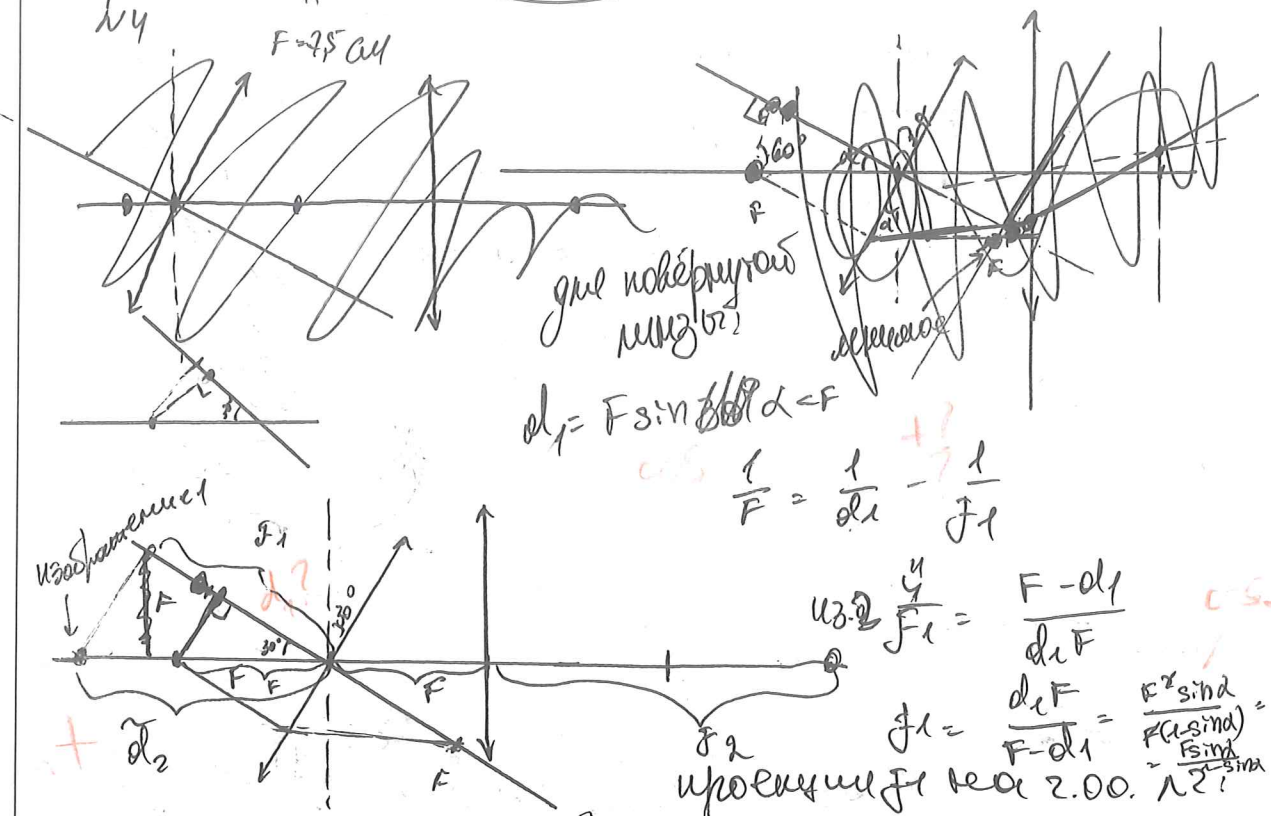 N4
F=7,5 см
60°
F
α
F
мнимое
для повёрнутой
линзы:
d₁ = F sin α < F
1/F = 1/d₁ - 1/f₁
+?
изображение 1
f₁
F
d₁?
30°
30°
F
F
F
F
+
d̃₂
f₂
из 1/f₁ = (F - d₁)/(d₁F)
f₁ = d₁F/(F - d₁) = F² sinα/(F(1 - sinα)) = F sinα/(1 - sinα)
проекция f₁ на г.О.О. л2: